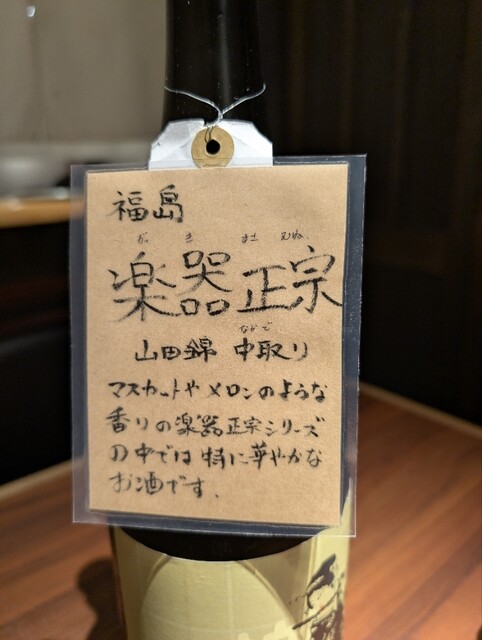 福島
がっ き まさ むね
楽器正宗
なかど
山田錦 中取り
マスカットや メロンのような
香りの楽器正宗シリーズ
の中では 特に華やかな
お酒です.